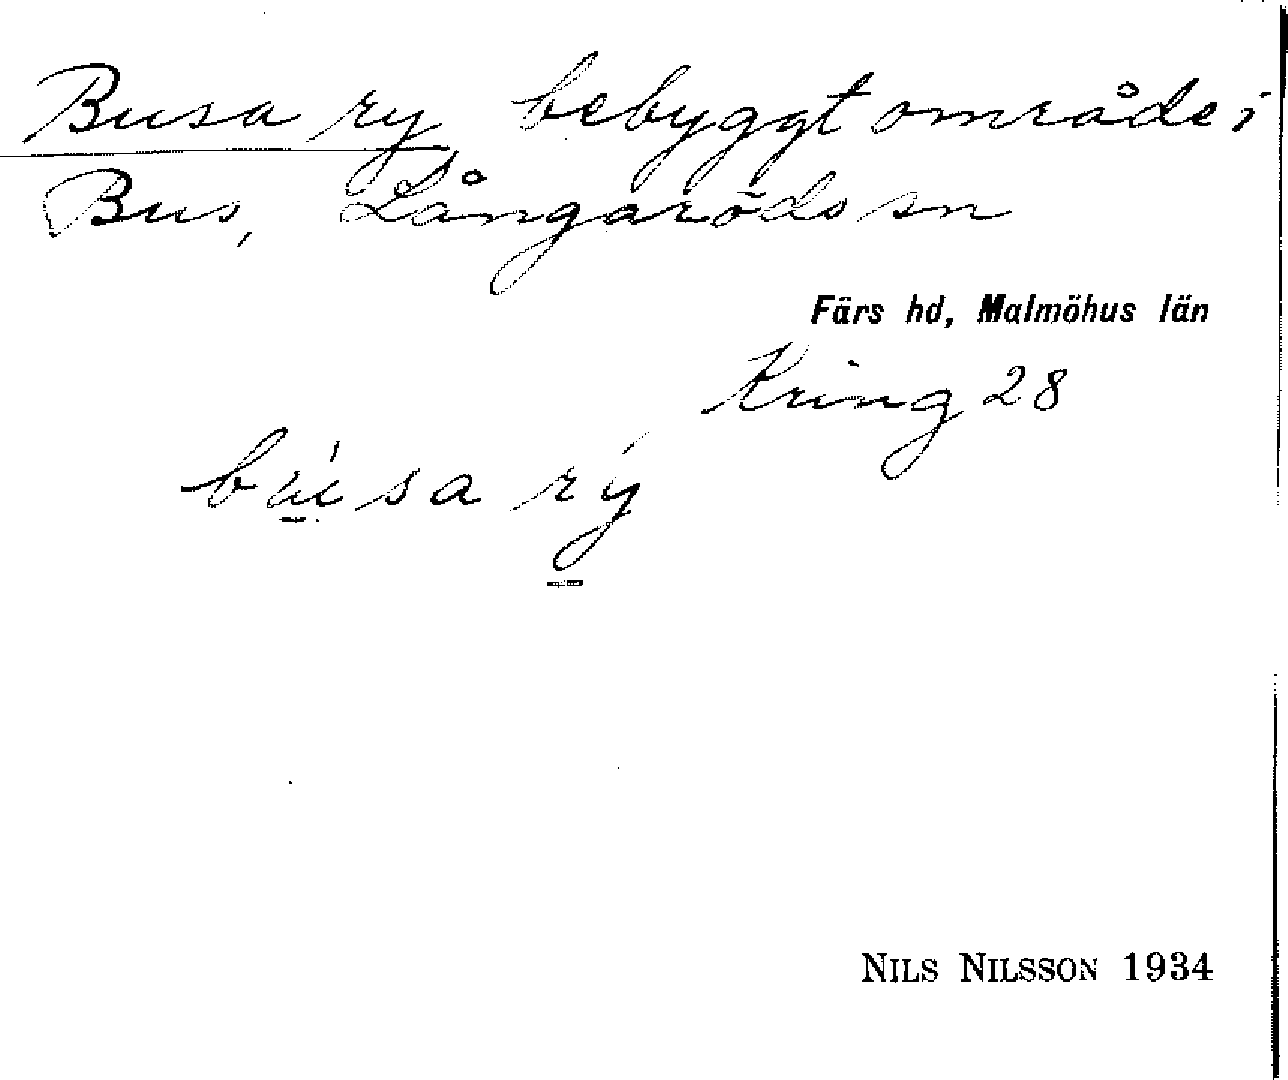 Busa ry bebyggt område i
Bus, Långaröds sn
Färs hd, Malmöhus län
Kring 28
sa rý
NILS NILSSON 1934